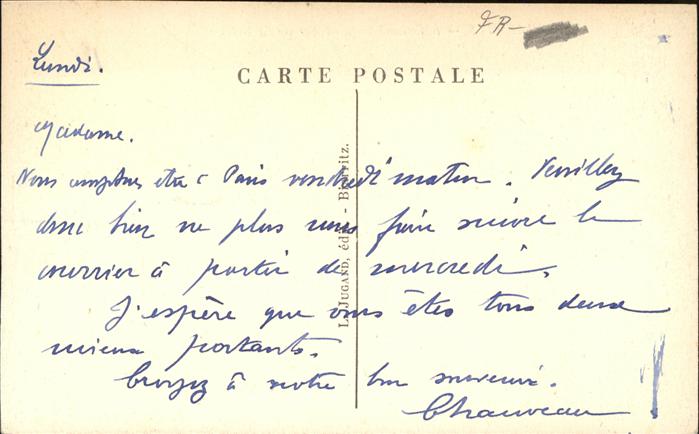 FR-
Lundi.
CARTE POSTALE
Madame.
Nous comptons être à Paris vendredi matin. Veuillez
donc bien ne plus nous faire suivre le
courrier à partir de mercredi.
J'espère que vous êtes tous deux
mieux portants.
Croyez à notre bon souvenir.
Chauveau
L. JUGAND, édit. - Biarritz.